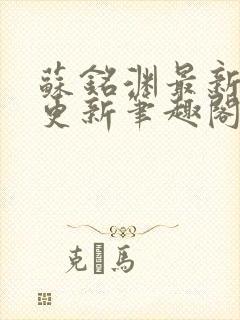 蘇銘淵最新
更新筆趣閣
克馬